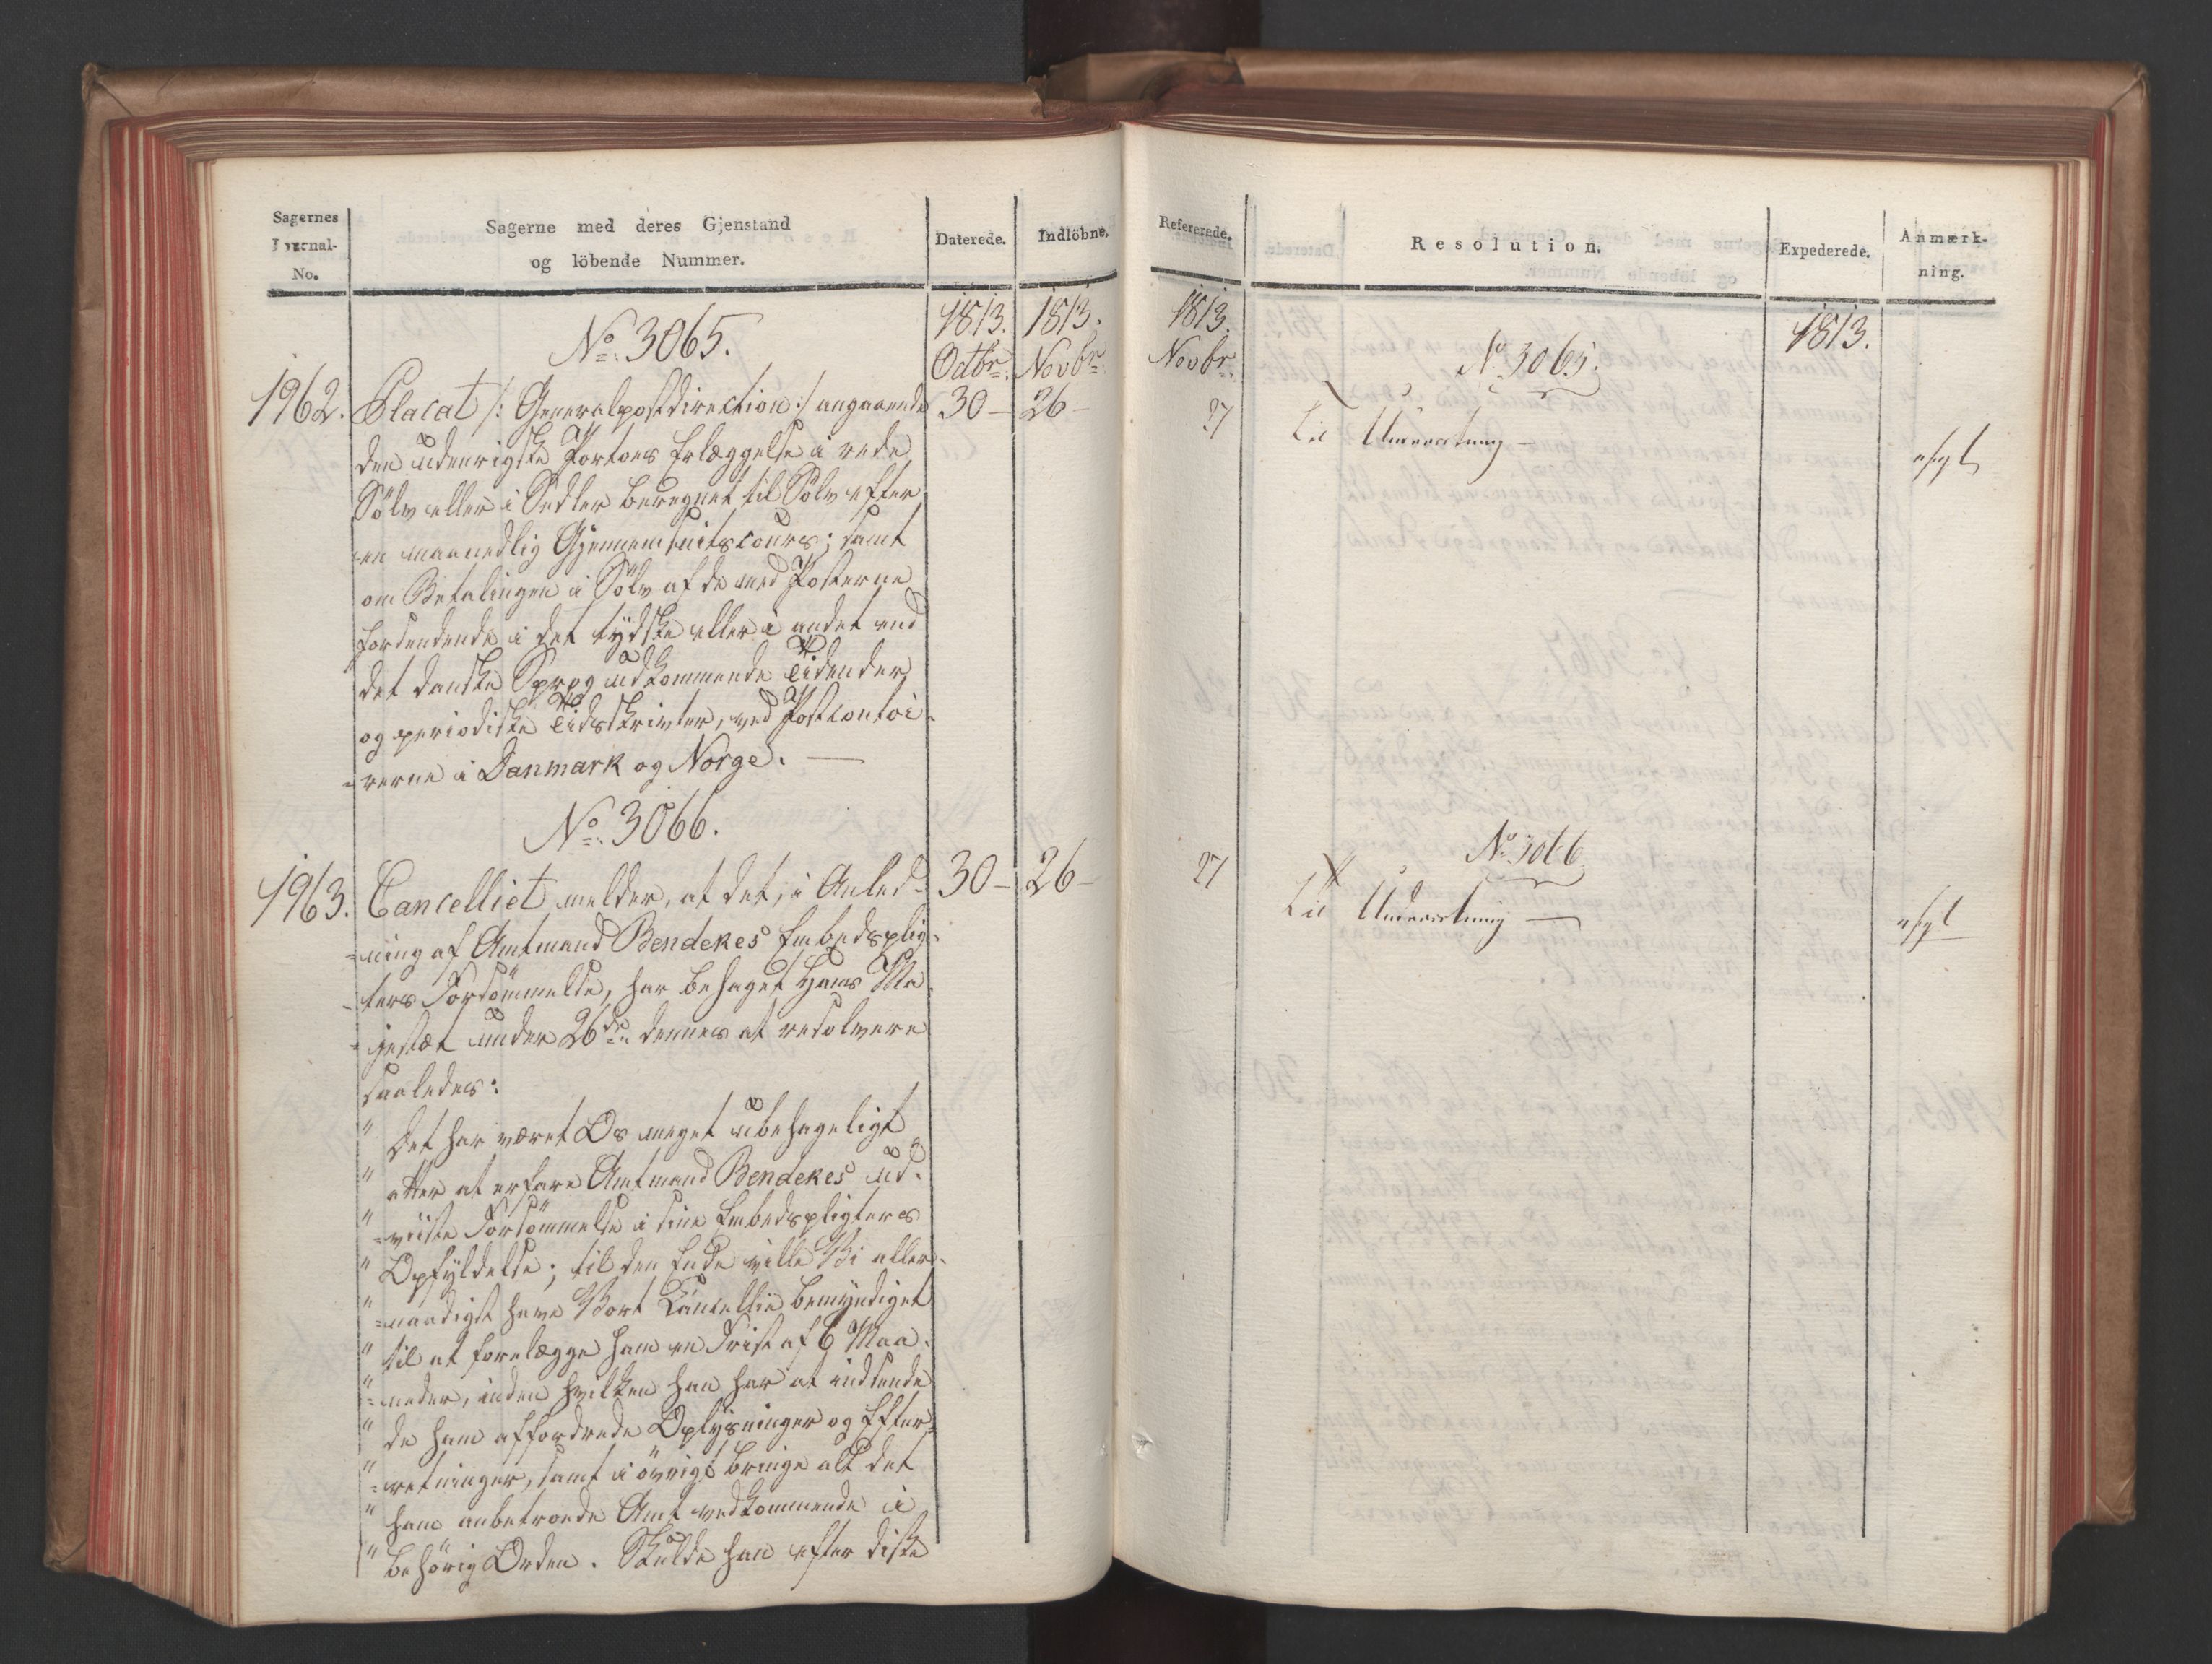 Sagernes
Journal-
No.
Sagerne med deres Gjenstand
og löbende Nummer.
Daterede.
Indlöbne.
1813.
1813.
Octbr.
Novbr.
No. 3065.
1962. Placat /: Generalpostdirection :/ angaaende 30 – 26 –
den udenrigske Portoes Erlæggelse i rede
Sölv eller i Sedler beregnet til Sölv efter
en maanedlig Gjennemsnitscours; samt
om Betalingen i Sölv af de med Posterne
forsendende i det tydske eller i andet end
det danske Sprog udkommende Tidender
og periodiske Tidsskrivter, ved Postcontoi-
=rerne i Danmark og Norge. —
No. 3066.
1963. Cancelliet melder, at det, i Anled- 30 – 26 –
=ning af Amtmand Bendekes Embedsplig-
=ters Forsömmelse, har behaget Hans Ma-
=jestæt under 26de dennes at resolvere
saaledes:
" Det har været Os meget ubehageligt
" atter at erfare Amtmand Bendekes ud-
" =viiste Forsömmelse i sine Embedspligters
" Opfyldelse; til den Ende ville Vi aller-
" =naadigst have Vort Cancellie bemyndiget
" til at forelægge ham en Frist af 6 Maa-
" =neder, inden hvilken han har at indsende
" de ham affordrede Oplysninger og Efter-
" =retninger, samt i övrigt bringe alt det
" ham anbetroede Amt vedkommende i
" behörig Orden. Skulde han efter diske
Refererede.
Resolution.
Expederede.
Anmærk-
ning.
1813.
1813.
Novbr.
No 3065.
27
Til Underretning —
No 3066
27
Til Underretning —